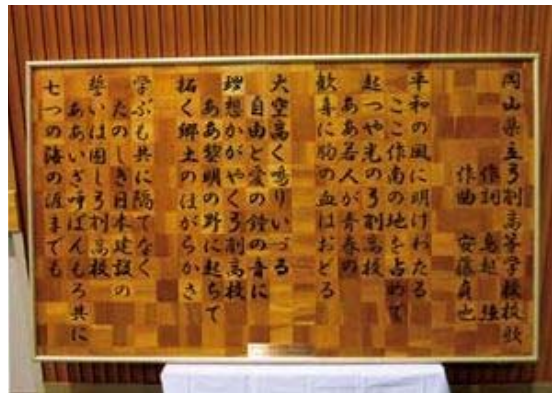 岡山県立弓削高等学校校歌
作詞 鳥越 強
作曲 安藤貞也
平和の風に明けわたる
ここ作南の地を占めて
起つや光の弓削高校
ああ若人が青春の
歓喜に胸の血はおどる
大空高く鳴りいづる
自由と愛の鐘の音に
理想かがやく弓削高校
ああ黎明の野に起ちて
拓く郷土のほがらかさ
学ぶも共に隔てなく
たのしき日本建設の
誓いは固し弓削高校
ああいざ呼ばんもろ共に
七つの海の涯までも